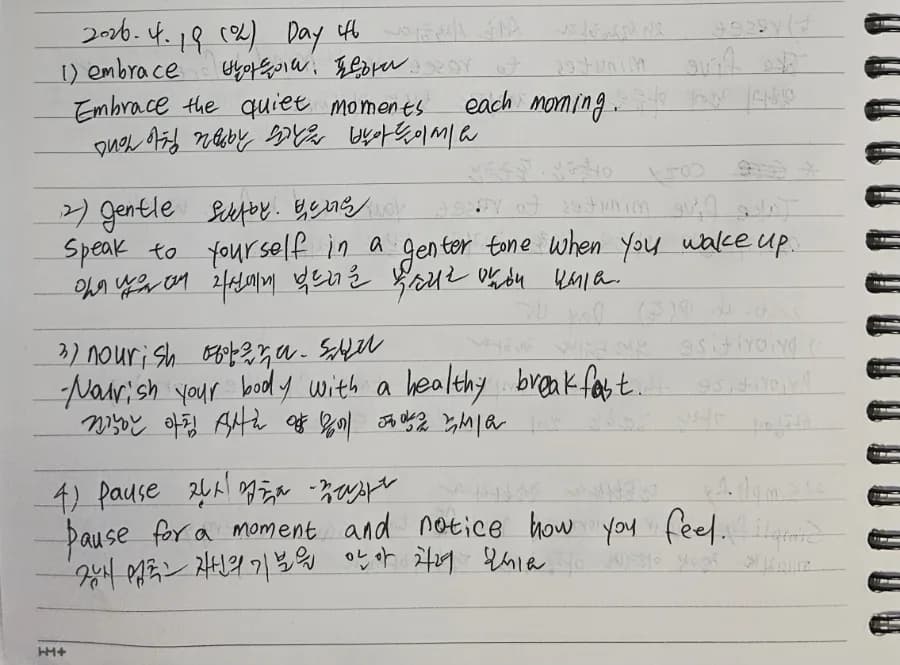 2026.4.19 (일) Day 46
1) embrace 받아들이다. 포옹하다
Embrace the quiet moments each morning.
매일 아침 고요한 순간을 받아들이세요
2) gentle 온화한. 부드러운
Speak to yourself in a genter tone when you wake up
일어났을 때 자신에게 부드러운 목소리로 말해 보세요.
3) nourish 영양을주다. 돌보다
Nourish your body with a healthy breakfast.
건강한 아침 식사로 몸에 영양을 주세요
4) pause 잠시 멈추다 중단하다
pause for a moment and notice how you feel.
잠시 멈추고 자신의 기분을 알아 차려 보세요